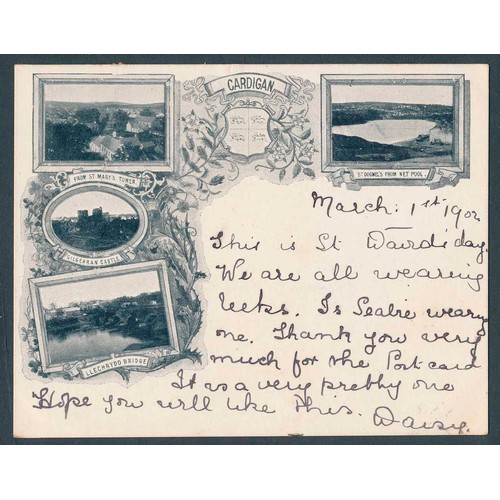 CARDIGAN
FROM ST MARY'S TOWER.
ST DOGMEL'S FROM NET POOL.
CILGERRAN CASTLE
LLECHRYDD BRIDGE
March: 1st 1902
This is St David's day.
We are all wearing
leeks. Is wearing
one. Thank you very
much for the Postcard
It is a very pretty one
Hope you will like this.
Daisy.